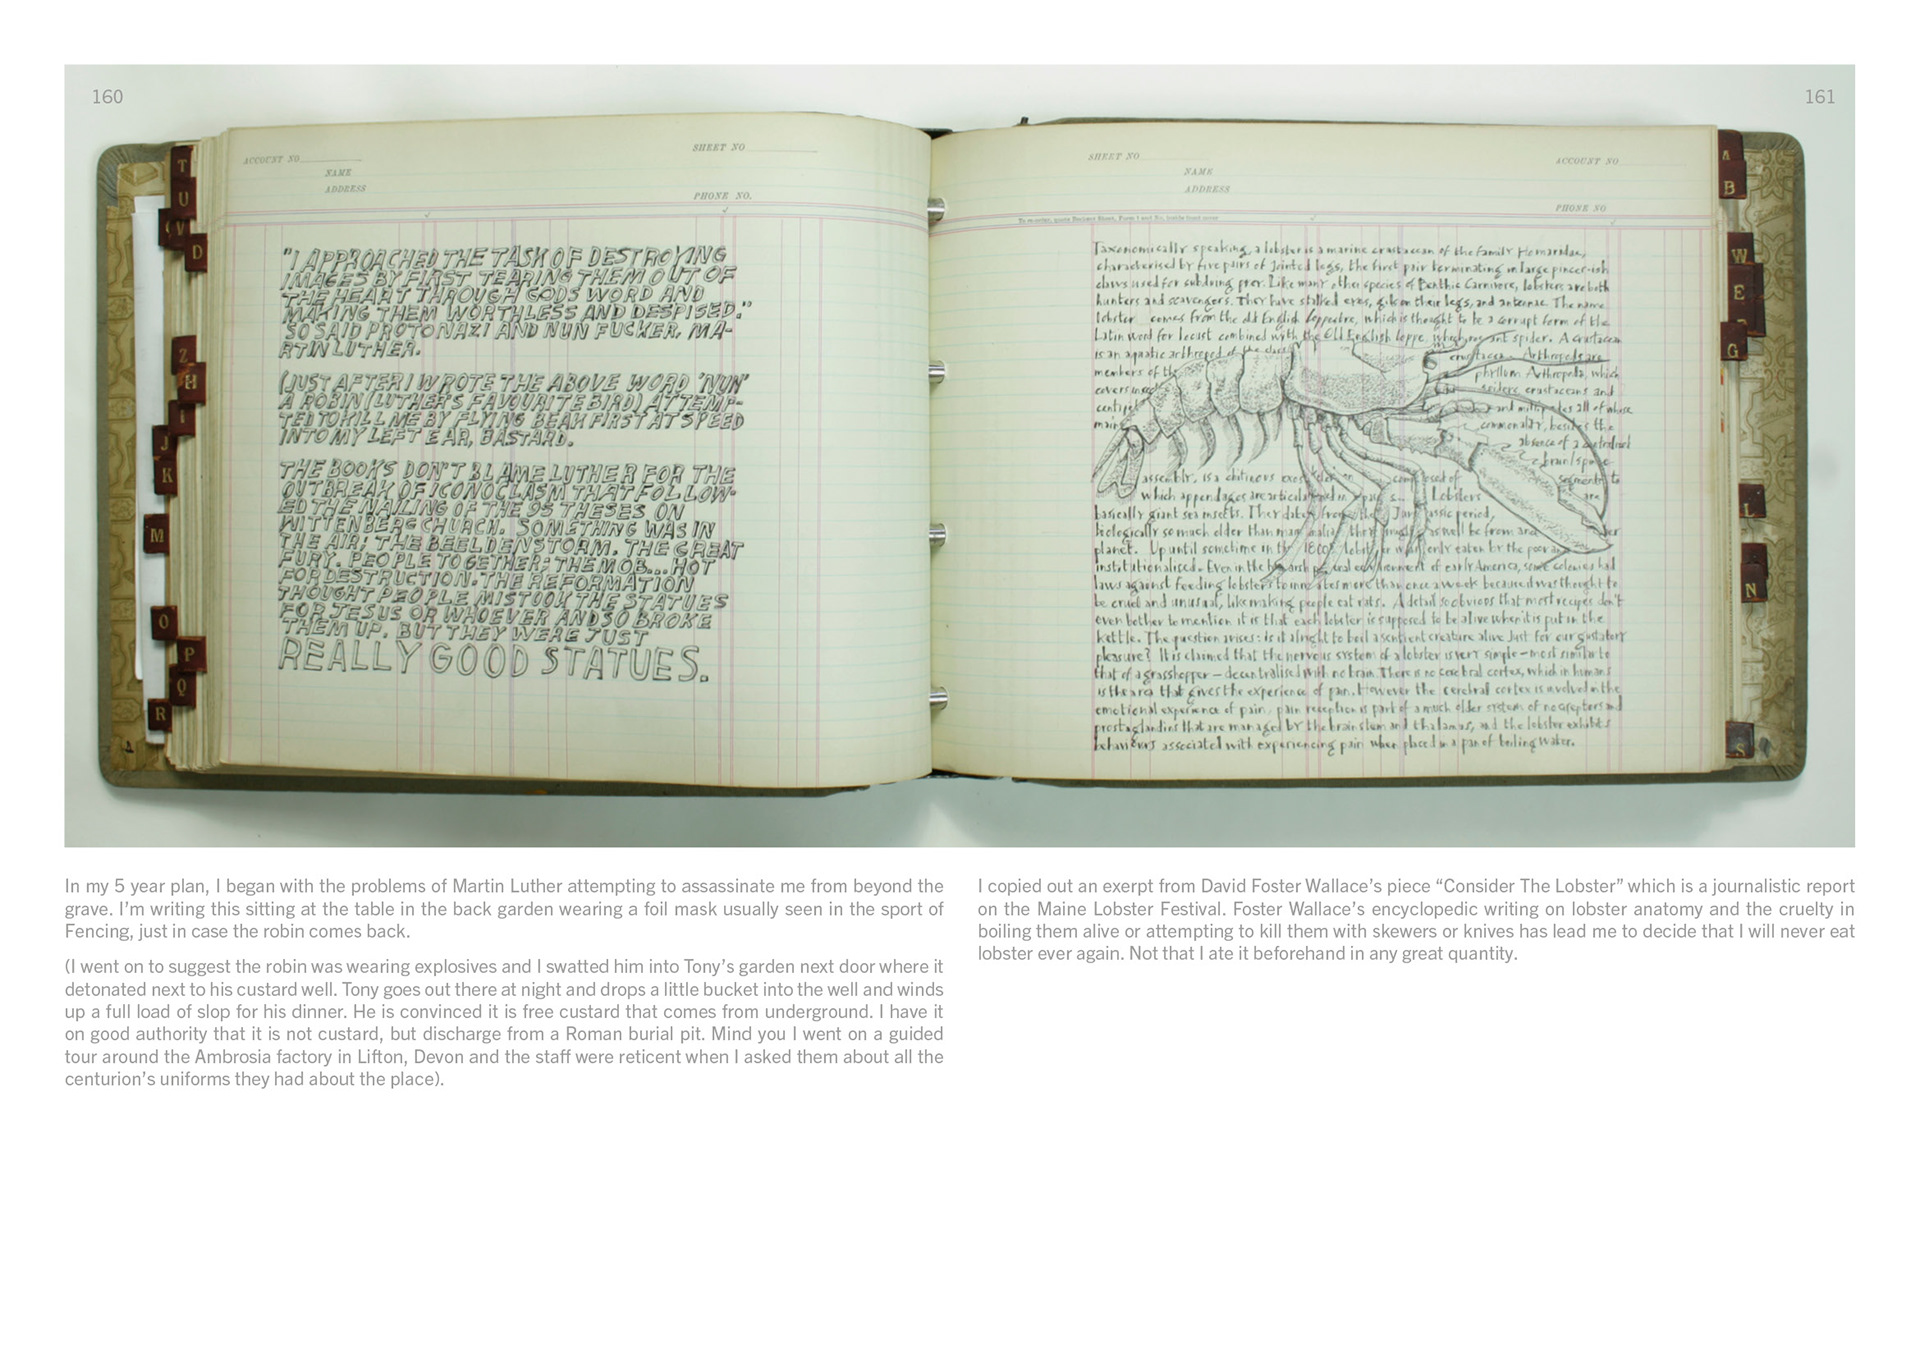 160
161
ACCOUNT NO
SHEET NO
NAME
ADDRESS
PHONE NO.
T
U
V
D
Z
H
I
J
K
M
O
P
Q
R
"I APPROACHED THE TASK OF DESTROYING
IMAGES BY FIRST TEARING THEM OUT OF
THE HEART THROUGH GODS WORD AND
MAKING THEM WORTHLESS AND DESPISED."
SO SAID PROTONAZI AND NUN FUCKER, MA-
RTIN LUTHER.
(JUST AFTER I WROTE THE ABOVE WORD 'NUN'
A ROBIN (LUTHER'S FAVOURITE BIRD) ATTEMP-
TED TO KILL ME BY FLYING BEAK FIRST AT SPEED
INTO MY LEFT EAR, BASTARD.
THE BOOKS DON'T BLAME LUTHER FOR THE
OUTBREAK OF ICONOCLASM THAT FOLLOW-
ED THE NAILING OF THE 95 THESES ON
WITTENBERG CHURCH. SOMETHING WAS IN
THE AIR; THE BEELDENSTORM. THE GREAT
FURY. PEOPLE TOGETHER; THE MOB... HOT
FOR DESTRUCTION. THE REFORMATION
THOUGHT PEOPLE MISTOOK THE STATUES
FOR JESUS OR WHOEVER AND SO BROKE
THEM UP. BUT THEY WERE JUST
REALLY GOOD STATUES.
SHEET NO
ACCOUNT NO
NAME
ADDRESS
PHONE NO
A
B
W
E
G
L
N
S
Taxonomically speaking, a lobster is a marine crustacean of the family Homaridae,
characterised by five pairs of jointed legs, the first pair terminating in large pincer-ish
claws used for subduing prey. Like many other species of Benthic Carnivore, lobsters are both
hunters and scavengers. They have stalked eyes, gills on their legs, and antennae. The name
lobster comes from the old English loppestre, which is thought to be a corrupt form of the
Latin word for locust combined with the Old English loppe, which meant spider. A crustacean
is an aquatic arthropod of the class crustacea. Arthropods are
members of the phyllum Arthropoda, which
covers insects, spiders, crustaceans and
centipedes and millipedes all of whose
main commonality, besides the
absence of a centralised
brain/spine
assembly, is a chitinous exoskeleton composed of segments to
which appendages are articulated in pairs... Lobsters are
basically giant sea insects. They date from the Jurassic period,
biologically so much older than mammalia, they might as well be from another
planet. Up until sometime in the 1800s lobster was only eaten by the poor and
institutionalised. Even in the harsh penal environment of early America, some colonies had
laws against feeding lobsters to inmates more than once a week because it was thought to
be cruel and unusual, like making people eat rats. A detail so obvious that most recipes don't
even bother to mention it is that each lobster is supposed to be alive when it is put in the
kettle. The question arises: is it alright to boil a sentient creature alive just for our gustatory
pleasure? It is claimed that the nervous system of a lobster is very simple – most similar to
that of a grasshopper – decentralised with no brain. There is no cerebral cortex, which in humans
is the area that gives the experience of pain. However the cerebral cortex is involved in the
emotional experience of pain, pain reception is part of a much older system of nociceptors and
prostaglandins that are managed by the brain stem and thalamus, and the lobster exhibits
behaviours associated with experiencing pain when placed in a pan of boiling water.
In my 5 year plan, I began with the problems of Martin Luther attempting to assassinate me from beyond the
grave. I'm writing this sitting at the table in the back garden wearing a foil mask usually seen in the sport of
Fencing, just in case the robin comes back.
(I went on to suggest the robin was wearing explosives and I swatted him into Tony's garden next door where it
detonated next to his custard well. Tony goes out there at night and drops a little bucket into the well and winds
up a full load of slop for his dinner. He is convinced it is free custard that comes from underground. I have it
on good authority that it is not custard, but discharge from a Roman burial pit. Mind you I went on a guided
tour around the Ambrosia factory in Lifton, Devon and the staff were reticent when I asked them about all the
centurion's uniforms they had about the place).
I copied out an exerpt from David Foster Wallace's piece "Consider The Lobster" which is a journalistic report
on the Maine Lobster Festival. Foster Wallace's encyclopedic writing on lobster anatomy and the cruelty in
boiling them alive or attempting to kill them with skewers or knives has lead me to decide that I will never eat
lobster ever again. Not that I ate it beforehand in any great quantity.